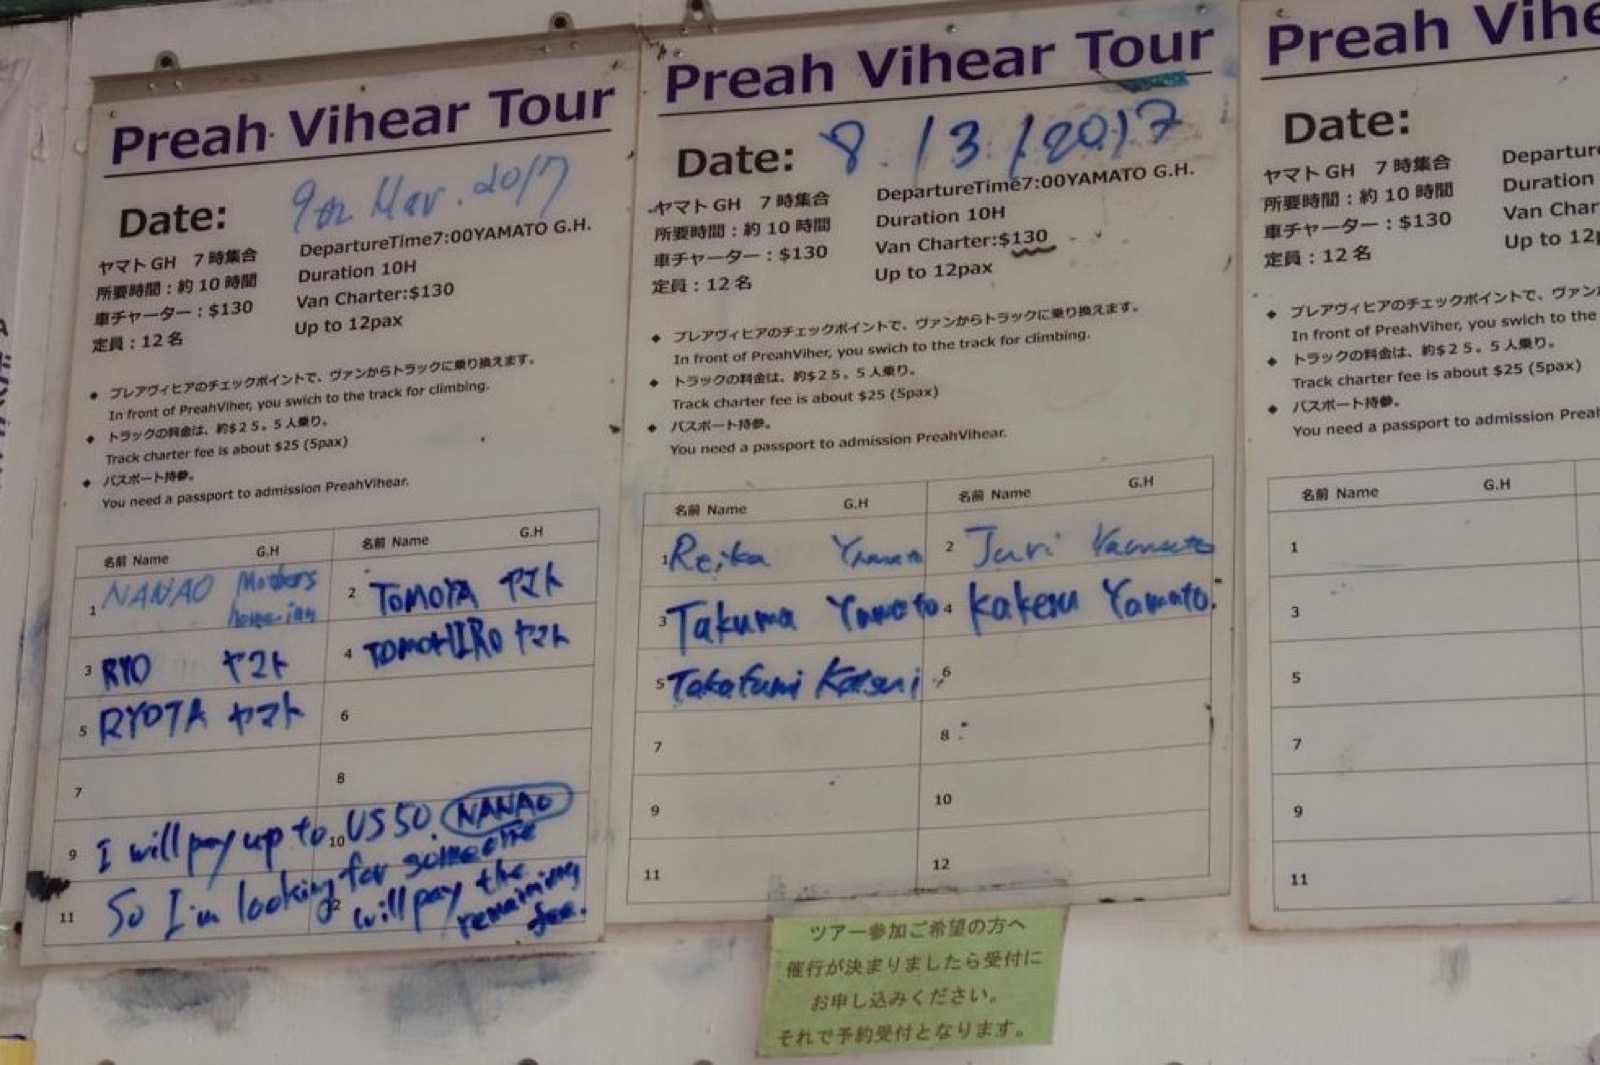 Preah Vihear Tour
Date: 9th Mar. 2017
ヤマトGH 7時集合
所要時間：約10時間
車チャーター：$130
定員：12名
DepartureTime7:00YAMATO G.H.
Duration 10H
Van Charter:$130
Up to 12pax
◆ プレアヴィヒアのチェックポイントで、ヴァンからトラックに乗り換えます。
In front of PreahViher, you swich to the track for climbing.
◆ トラックの料金は、約$25。5人乗り。
Track charter fee is about $25 (5pax)
◆ パスポート持参。
You need a passport to admission PreahVihear.
名前 Name G.H 名前 Name G.H
1 NANAO Mothers home inn 2 TOMOYA ヤマト
3 RYO ヤマト 4 TOMOHIRO ヤマト
5 RYOTA ヤマト 6
7 8
9 10
11
I will pay up to US50. NANAO
So I'm looking for someone
will pay the
remaining
fee.
Preah Vihear Tour
Date: 8./3./2017
ヤマトGH 7時集合
所要時間：約10時間
車チャーター：$130
定員：12名
DepartureTime7:00YAMATO G.H.
Duration 10H
Van Charter:$130
Up to 12pax
◆ プレアヴィヒアのチェックポイントで、ヴァンからトラックに乗り換えます。
In front of PreahViher, you swich to the track for climbing.
◆ トラックの料金は、約$25。5人乗り。
Track charter fee is about $25 (5pax)
◆ パスポート持参。
You need a passport to admission PreahVihear.
名前 Name G.H 名前 Name G.H
1 Reika Yamato 2 Juri Yamato
3 Takuma Yamato 4 Kakeru Yamato
5 Takafumi 6
7 8
9 10
11 12
ツアー参加ご希望の方へ
催行が決まりましたら受付に
お申し込みください。
それで予約受付となります。
Preah Vihe
Date:
ヤマトGH 7時集合
所要時間：約10時間
車チャーター：$130
定員：12名
Departure
Duration
Van Char
Up to 12p
◆ プレアヴィヒアのチェックポイントで、ヴァン
In front of PreahViher, you swich to the
◆ トラックの料金は、約$25。5人乗り。
Track charter fee is about $25 (5pax)
◆ パスポート持参。
You need a passport to admission Preah
名前 Name G.H
1
3
5
7
9
11